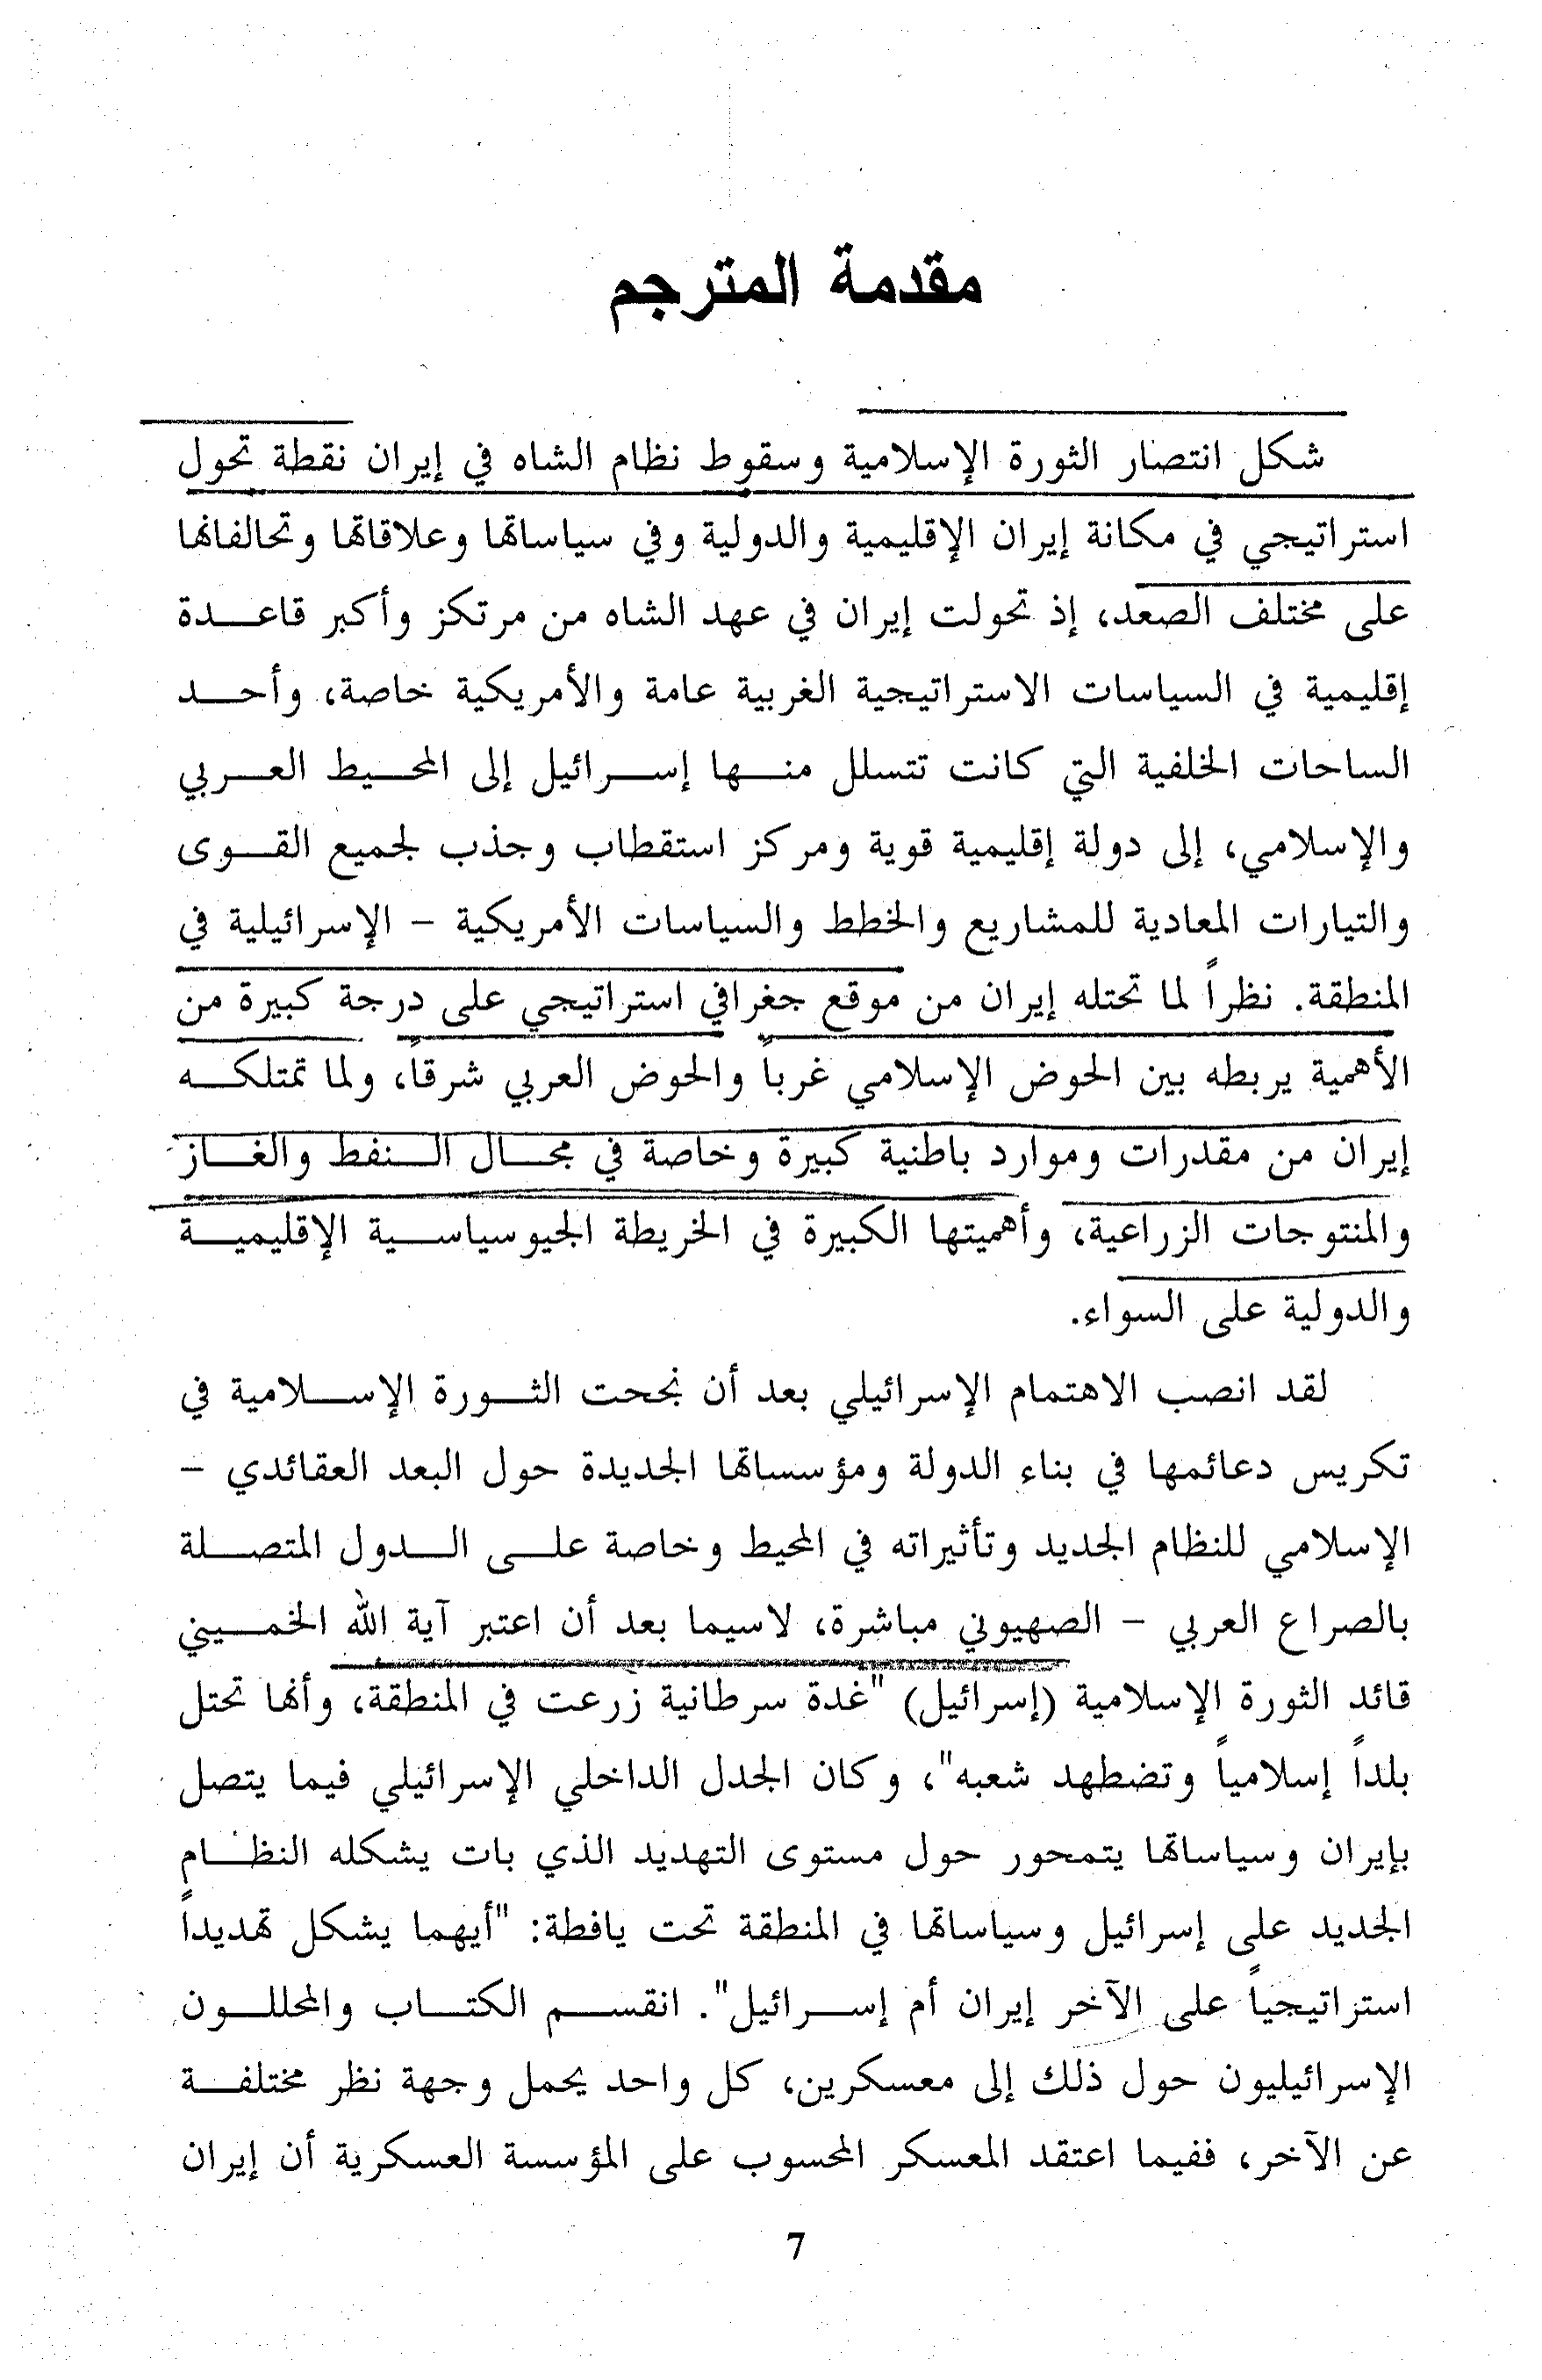 مقدمة المترجم
شكل انتصار الثورة الإسلامية وسقوط نظام الشاه في إيران نقطة تحول
استراتيجي في مكانة إيران الإقليمية والدولية وفي سياساتها وعلاقاتها وتحالفاتها
على مختلف الصعد، إذ تحولت إيران في عهد الشاه من مرتكز وأكبر قاعدة
إقليمية في السياسات الاستراتيجية الغربية عامة والأمريكية خاصة، وأحد
الساحات الخلفية التي كانت تتسلل منها إسرائيل إلى المحيط العربي
والإسلامي، إلى دولة إقليمية قوية ومركز استقطاب وجذب لجميع القوى
والتيارات المعادية للمشاريع والخطط والسياسات الأمريكية - الإسرائيلية في
المنطقة. نظراً لما تحتله إيران من موقع جغرافي استراتيجي على درجة كبيرة من
الأهمية يربطه بين الحوض الإسلامي غرباً والحوض العربي شرقاً، ولما تمتلكه
إيران من مقدرات وموارد باطنية كبيرة وخاصة في مجال النفط والغاز
والمنتوجات الزراعية، وأهميتها الكبيرة في الخريطة الجيوسياسية الإقليمية
والدولية على السواء.
لقد انصب الاهتمام الإسرائيلي بعد أن نجحت الثورة الإسلامية في
تكريس دعائمها في بناء الدولة ومؤسساتها الجديدة حول البعد العقائدي -
الإسلامي للنظام الجديد وتأثيراته في المحيط وخاصة على الدول المتصلة
بالصراع العربي - الصهيوني مباشرة، لاسيما بعد أن اعتبر آية الله الخميني
قائد الثورة الإسلامية (إسرائيل) "غدة سرطانية زرعت في المنطقة، وأنها تحتل
بلداً إسلامياً وتضطهد شعبه"، وكان الجدل الداخلي الإسرائيلي فيما يتصل
بإيران وسياساتها يتمحور حول مستوى التهديد الذي بات يشكله النظام
الجديد على إسرائيل وسياساتها في المنطقة تحت يافطة: "أيهما يشكل تهديداً
استراتيجياً على الآخر إيران أم إسرائيل". انقسم الكتاب والمحللون
الإسرائيليون حول ذلك إلى معسكرين، كل واحد يحمل وجهة نظر مختلفة
عن الآخر، ففيما اعتقد المعسكر المحسوب على المؤسسة العسكرية أن إيران
7